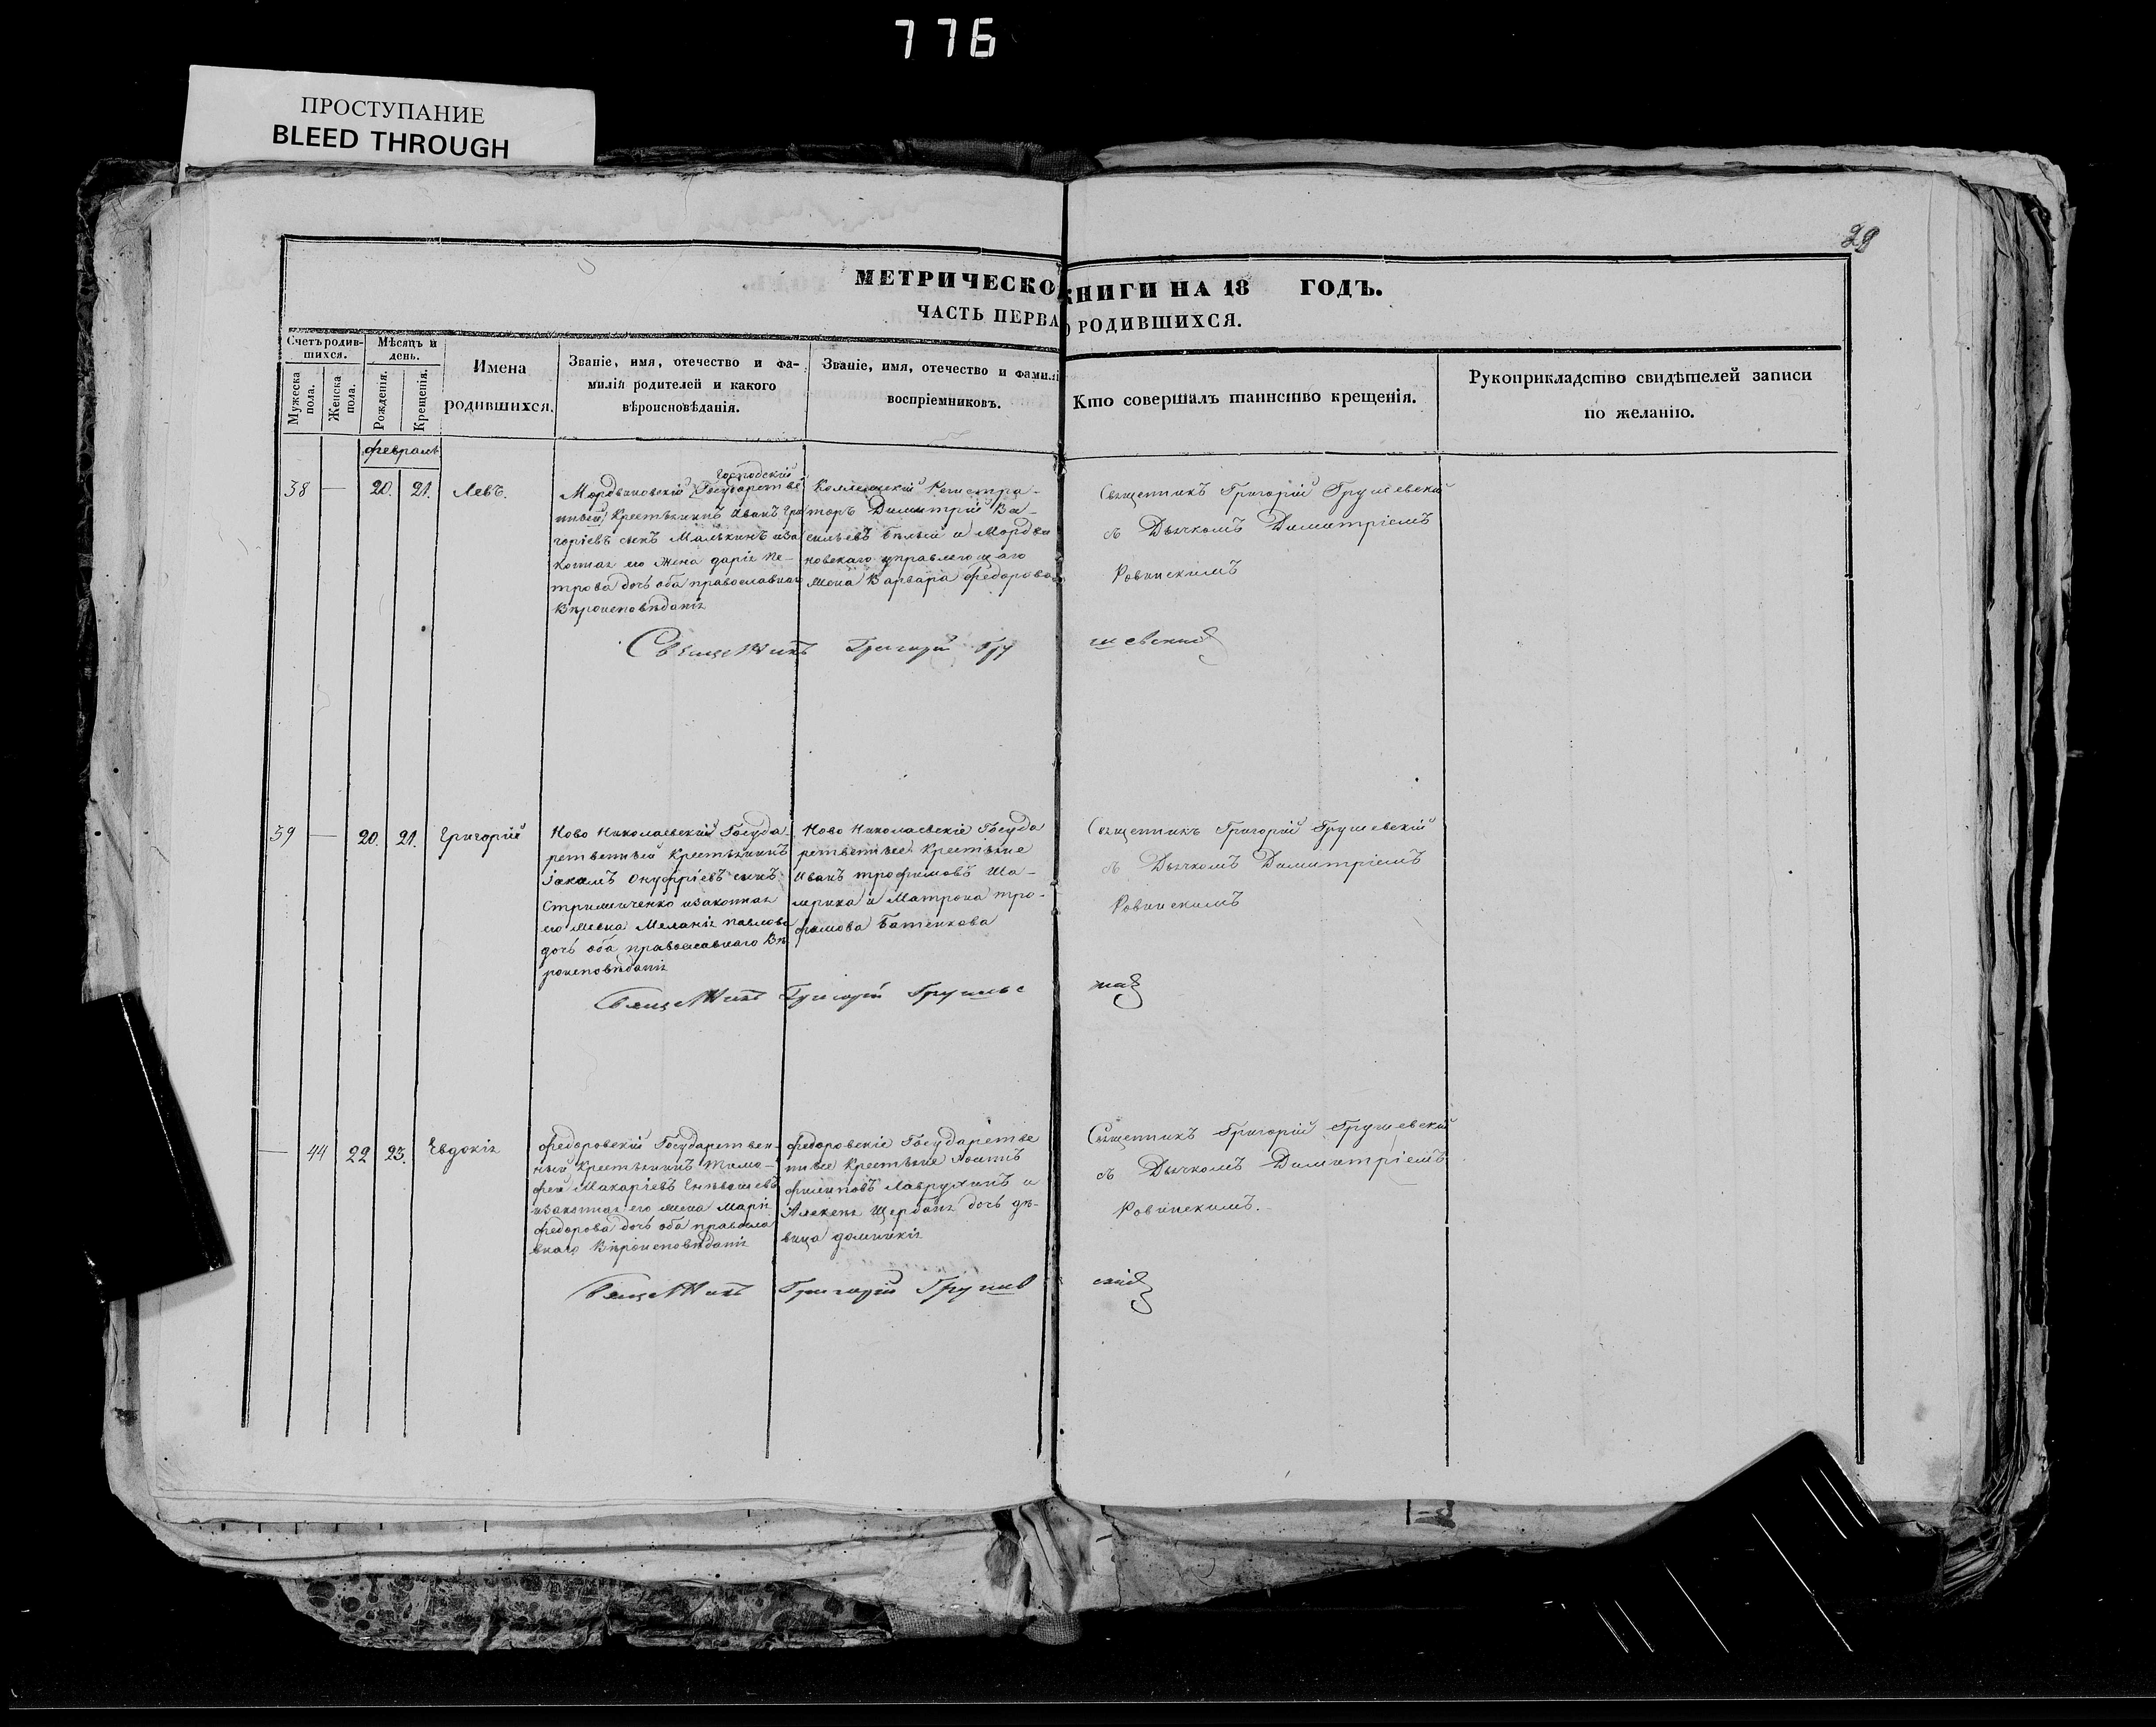 776
ПРОСТУПАНИЕ
BLEED THROUGH
29
МЕТРИЧЕСКО КНИГИ НА 18 ГОДЪ.
ЧАСТЬ ПЕРВА О РОДИВШИХСЯ.
Счетъ родив-
шихся.
Мужеска пола.
Женска пола.
Мѣсяцъ и
день.
Рожденія.
Крещенія.
Имена
родившихся.
Званіе, имя, отечество и фа-
миліи родителей и какого
вѣроисповѣданія.
Званіе, имя, отечество и фамилі
воспріемниковъ.
Кто совершалъ таинство крещенія.
Рукоприкладство свидѣтелей записи
по желанію.
февраль
38 — 20. 21. Левъ.
Господскій
Мордвиновскій Государстве
нный Крестьянинъ Иванъ Гри
горіевъ сынъ Малькинъ иза
конная его жена дарія Пе-
трова дочь оба православнаго
Вѣроисповѣданія
Коллежскій Регистра-
торъ Димитрій Ва-
сильевъ Бѣлый и Мордви
новскаго управляющаго
жена Варвара Федорова
Священникъ Григорій Грушевскій
съ Дьячкомъ Димитріемъ
Ровинскимъ
Священникъ Григорій Гру шевскій
39 — 20. 21. Григорій
Ново Николаевскій Госуда
рственный Крестьянинъ
Іакимъ Онуфріевъ сынъ
изаконная
его жена Меланія Павлова
дочь оба православнаго Вѣ
роисповѣданія
Ново Николаевскіе Госуда
рственные Крестьяне
Иванъ трофимовъ Ша-
и Матрона тро-
фимова Батенкова
Священникъ Григорій Грушевскій
съ Дьячкомъ Димитріемъ
Ровинскимъ
Священникъ Григорій Грушевс
— 44 22 23. Евдокія
Федоровскій Государствен-
ный Крестьянинъ Тимо-
фей Макаріевъ
изаконная его жена Марія
Федорова дочь оба правосла
внаго Вѣроисповѣданія
Федоровскіе Государстве
нные Крестьяне
Филиповъ Лаврухинъ и
дочь дѣ-
вица домникія
Священникъ Григорій Грушевскій
съ Дьячкомъ Димитріемъ
Ровинскимъ.
Священникъ Григорій Грушев скій